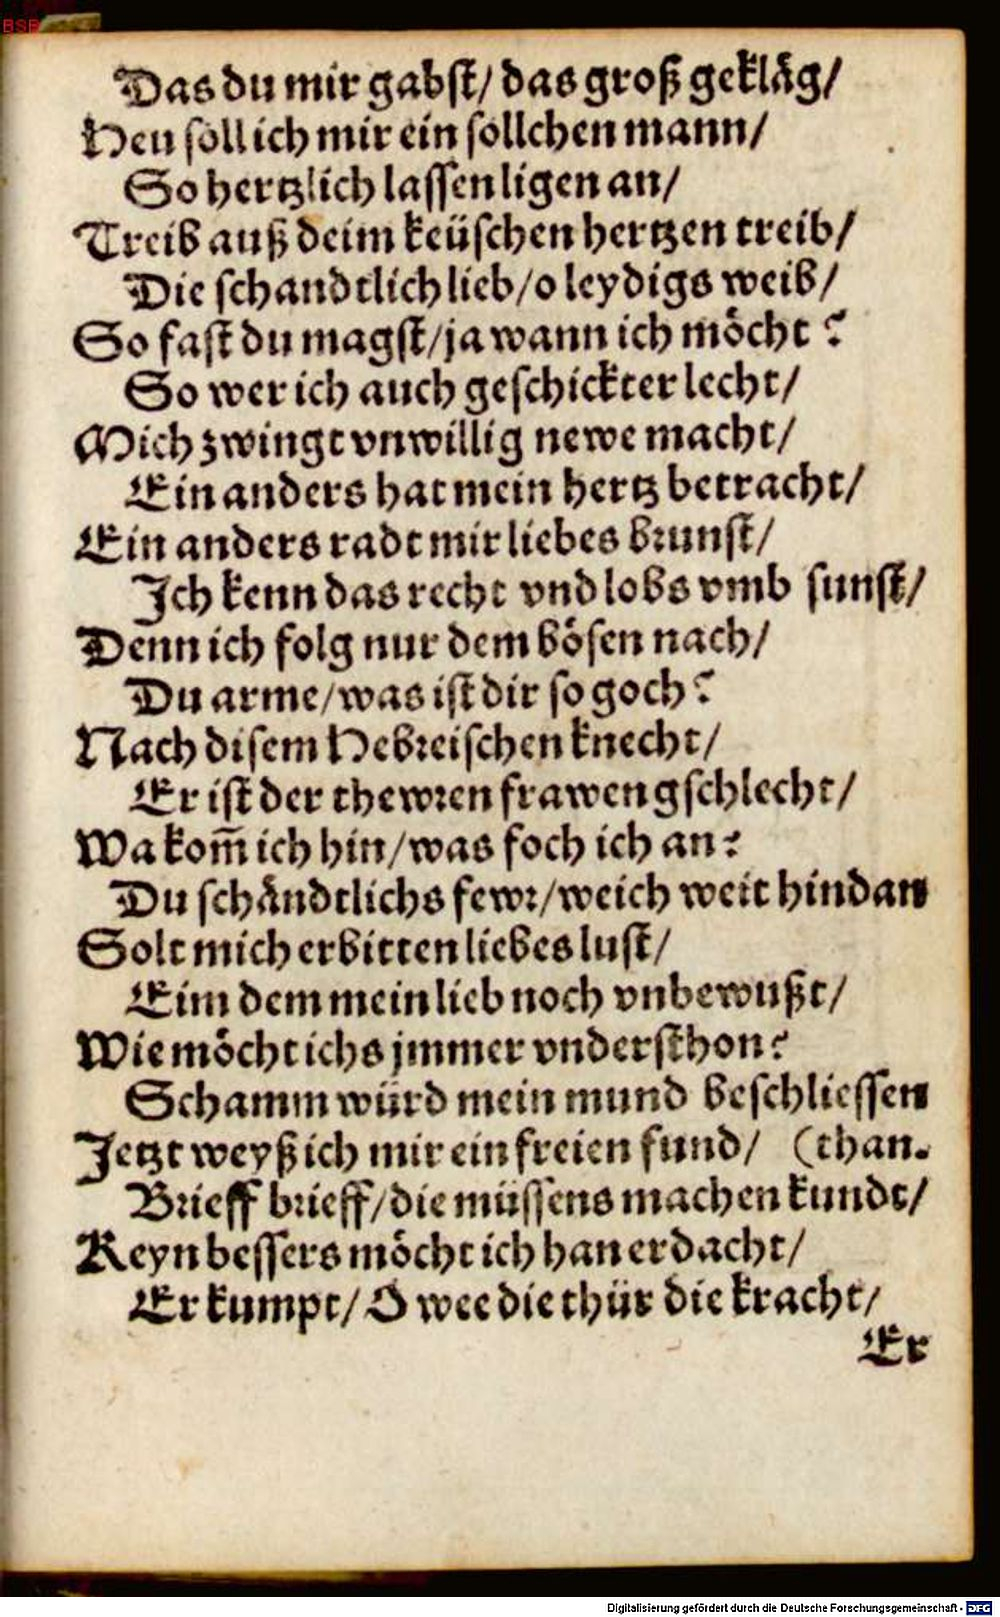 BSB
Das du mir gabst/ das groß gekläg/
Heu soll ich mir ein sollchen mann/
So hertzlich lassen ligen an/
Treib auß deim keüschen hertzen treib/
Die schandtlich lieb/ o leydigs weib/
So fast du magst/ ja wann ich möcht?
So wer ich auch geschickter lecht/
Mich zwingt vnwillig newe macht/
Ein anders hat mein hertz betracht/
Ein anders radt mir liebes brunst/
Ich kenn das recht vnd lobs vmb sunst/
Denn ich folg nur dem bösen nach/
Du arme/ was ist dir so goch?
Nach disem Hebreischen knecht/
Er ist der thewren frawen gschlecht/
Wa kom̄ ich hin/ was foch ich an?
Du schändtlichs fewr/ weich weit hindan
Solt mich erbitten liebes lust/
Eim dem mein lieb noch vnbewußt/
Wie möcht ichs jmmer vndersthon?
Schamm würd mein mund beschliessen
Jetzt weyß ich mir ein freien fund/ (than.
Brieff brieff/ die müssens machen kundt/
Keyn bessers möcht ich han erdacht/
Er kumpt/ O wee die thür die kracht/
Er
Digitalisierung gefördert durch die Deutsche Forschungsgemeinschaft - DFG